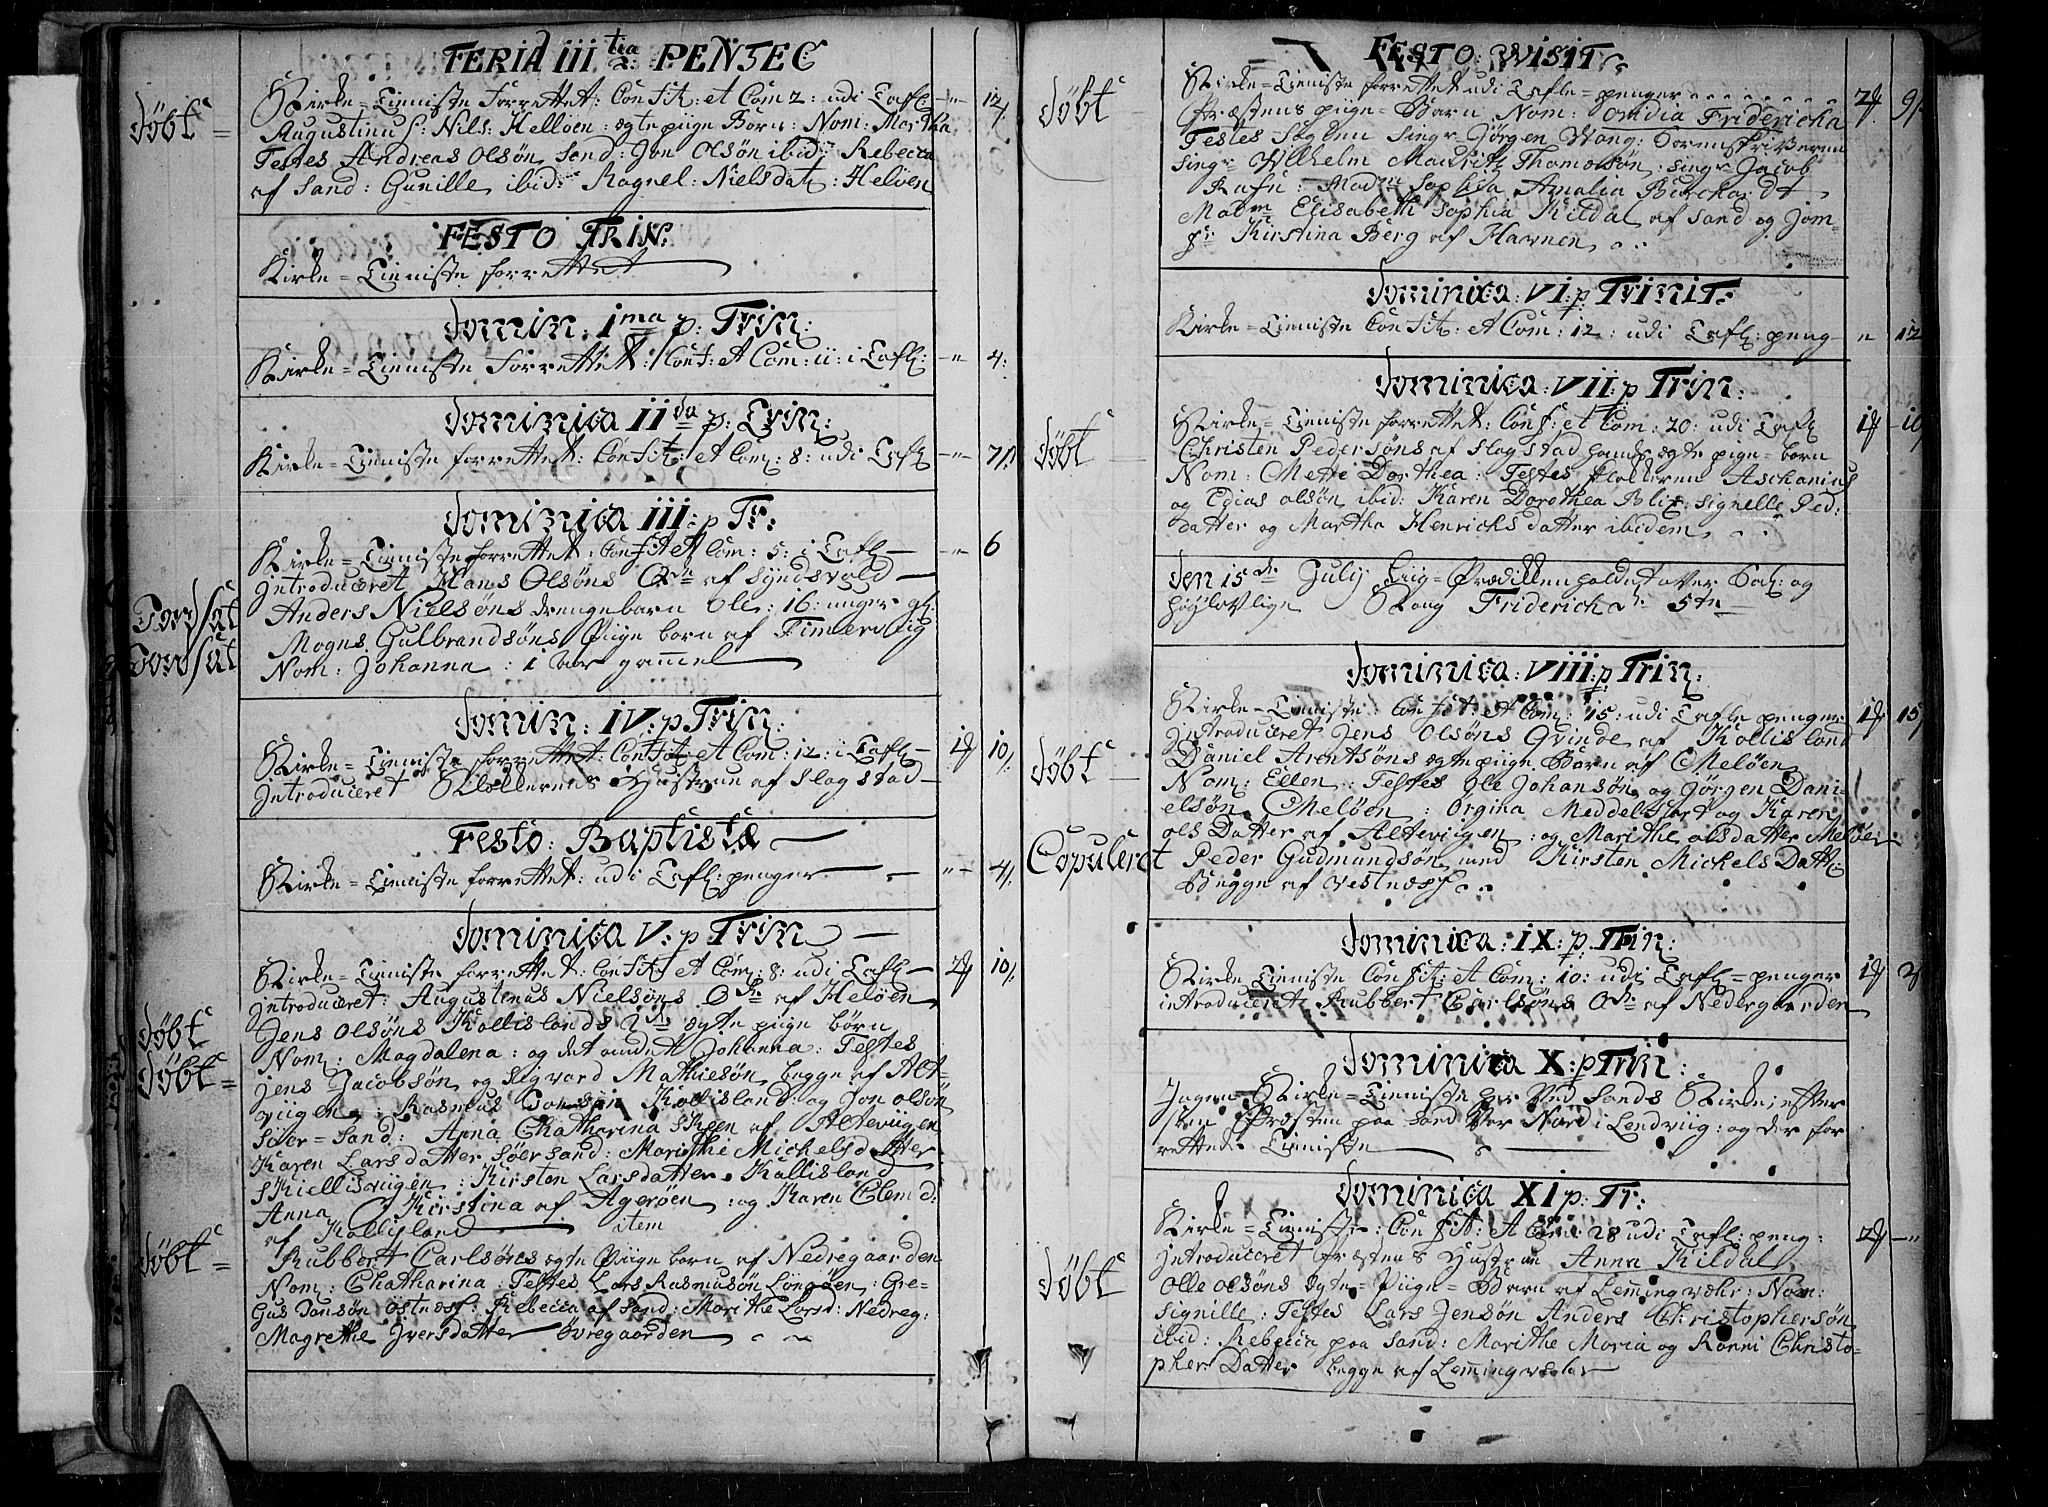 FERIA III tia PENTEC
Kirke=Tieniste Forrettet: Confit: et Com 2: udi Tafl: -"- 12/
Døbt = Augustinus: Nils: Helløen: ægte piige Barn: Nom: Martha
Testes Andreas Olsøn Sand: Jon Olsøn ibid: Rebecca
af Sand: Gunille ibid: Ragnel: Nielsdat: Heløen
FESTO TRIN:
Kirke=Tieniste forrettet
Domin: I ma p: Trin:
Kirke=Tieniste Forrettet: Conf: et Com: 11: i Tafl: -"- 4:
Dominica II da p: Trin:
Kirke=Tieniste forrettet: Confit: et Com: 8: udi Tafl -"- 7/
Dominica III: p Tr:
Kirke=Tieniste forrettet: Confit et Com: 5: i Tafl -"- 6
Introduceret Hans Olsøns Qv: af Syndsvold
Jordsat Anders Nielsøns drengebarn Ole: 16: uuger gl:
Jordsat Mogns Gulbrandsøns Piige barn af Fimerviig
Nom: Johanna: 1 aar gammel
Domin: IV: p Trin:
Kirke=Tieniste forrettet: Confit: et Com: 12: i Tafl 10/
Introduceret Hustrue af Slagstad
Festo: Baptistæ
Kirke=Tieniste forrettet: udi Tafl: penger "- 4/
Dominica V: p Trin
Kirke=Tieniste forrettet: Confit et Com: 8: udi Tafl 2 10/
Introduceret: Augustinus Nielsøns Q af Heløen
Døbt Jens Olsøns Kollislands 2 ægte piige børn
Døbt = Nom: Magdalena: og det andet Johanna: Testes
Jens Jacobsøn og Sigvard Mathiesøn begge af Alt=
viigen: Rasmus Kollisland: og Jon Olsøn
Søer=Sand: Anna Chatharina Skeen af Alteviigen
Karen Larsdatter Søersand: Marithe Michelsdatter
Skiellisviigen: Kirsten Larsdatter Kallisland
Anna Kirstina af Agerøen: og Karen Clemd:
af Kollisland item
Døbt = Rubbert Carlsøns ægte Piige barn af Nedregaarden
Nom: Chatharina: Testes Lars Rasmusøn Longøen: Gre=
gus Østnæs: Rebecca af Sand: Marithe Larsd: Nedreg:
Magrethe Iversdatter øvregaarden
FESTO: WISIT:
Kirke=Tieniste forrettet udi Tafle=penger 2 9/
Døbt Præstens piige=Barn Nom: Ovidia Fridericka
Testes Sing Jørgen Wang: Sorenskriveren
Sing Wilhelm Mauritz Thomasøn: Sing Jacob
Rafn: Mad Sophia Amalia Burchardt
Mad Elisabeth Sophia Kildal af Sand og Jom=
fr Kirstina Berg af Havnen
Dominica: VI: p Trinit:
Kirke=Tieniste Confit: et Com: 12: udi Tafl: peng " 12
Dominica: VII: p Trin:
Kirke=Tieniste forrettet: Conf: et Com: 20: udi Tafl 1 10/
Døbt Christen Pedersøns af Slagstad hands ægte pige=barn
Nom: Mette Dorthea: Testes Asckanius
og Edias Olsøn ibid: Karen Dorothea Blix: Signelle Ped:
datter og Martha Henrichs datter ibidem
Den 15de July Liig=Prædikken holdet over Sal: og
høylovlige Kong Friderich 5te
Dominica: VIII: p Trin:
Kirke=Tieniste: Confit: et Com: 15: udi Tafle penger 1 15/
Introduceret Jens Olsøns Qvinde af Kollisland
Døbt Daniel Arentsøns ægte piige Barn af Meløen
Nom: Ellen: Testes Ole Johansøn og Jørgen Dani=
elsøn Meløen: Orgina Meddelsfart og Karen
ols Datter af Alteviigen: og Marithe olsdatter Meløen
Copuleret Peder Gudmandsøn med Kirsten Mickels Datt:
Begge af Vestnæss
Dominica: IX: p: Trin:
Kirke Tieniste Confit: et Com: 10: udi Tafl=penger 1 2
introduceret Rubbert Carlsøns Q af Nedergaarden
Dominica X: p Trin:
Ingen Kirke=Tieniste her ved Sands Kirke; efter
som Præsten paa Sand var Nord i Lendviig: og der for
rettede Tieniste
Dominica XI p: Tr:
Kirke=Tieniste: Confit: et Com 28 udi Tafl: peng: 2 -"-
Introduceret Præstens Hustrue Anna Kildal
Døbt Olle Olsøns ægte=Piige=Barn af Lemmingvæhr: Nom:
Signille: Testes Lars Jensøn Anders Christophersøn
ibid: Rebecca paa Sand: Marithe Maria og Ranni Christo=
pher Datter begge af Lemingvæhr